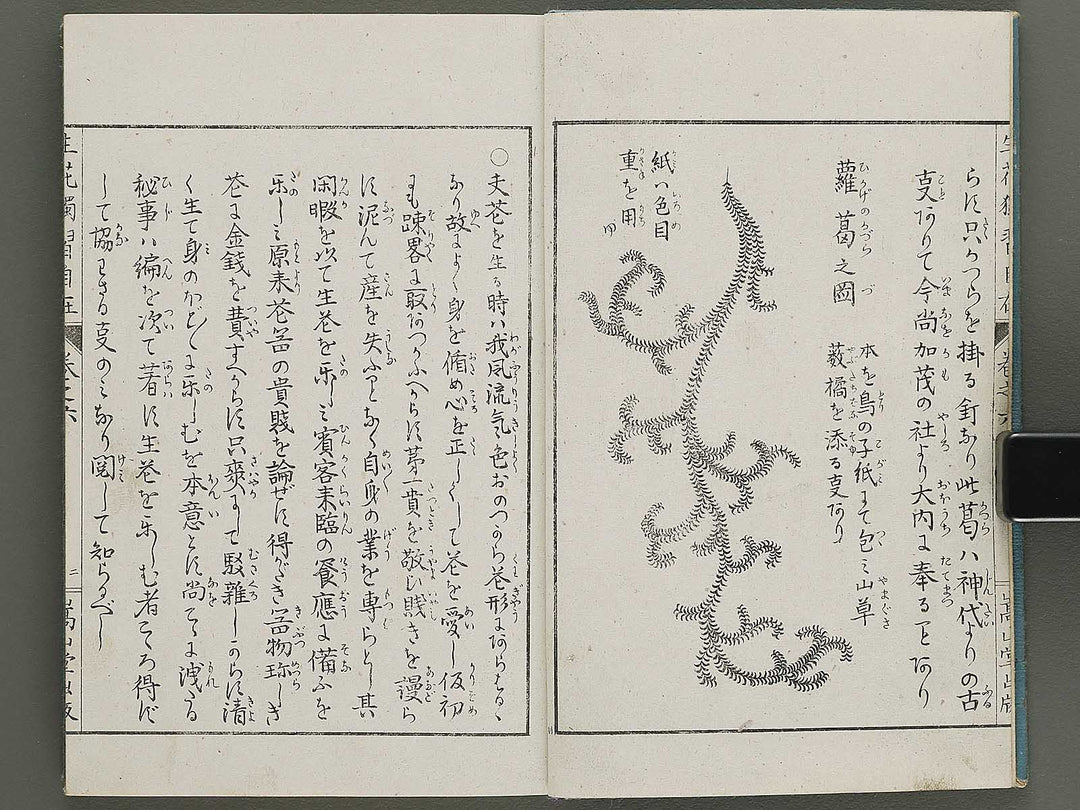 らず只かつらを掛る釘なり此葛ハ神代よりの古
支ありて今尚加茂の社より大内に奉るヿあり
蘿葛之図
本を鳥の子紙にて包ミ山草
薮橘を添る支あり
紙ハ色目
重を用ゆ
○夫花を生る時ハ我風流気色おのつから花形にあらはるゝ
なり故によく身を脩め心を正しくして花を愛し仮初
にも踈畧に取あつかふへからず第一貴を敬ひ賎きを謾ら
ず泥んて産を失ふことなく自身の業を専らとし其
閑暇を以て生花を楽しミ賓客来臨の饗應に備ふを
楽しミ原来花器の貴賎を論ぜず得がたき器物珍しき
花に金銭を費すへからず只爽にして駁雑しからず清
く生て身のほど〳〵に楽しむを本意とす尚こゝに洩たる
秘事ハ編を次て著す生花を楽しむ者こゝろ得ず
して協わざる支のミなり閲して知らるべし
生花獨習自在
巻之六
二
嵩山堂出版